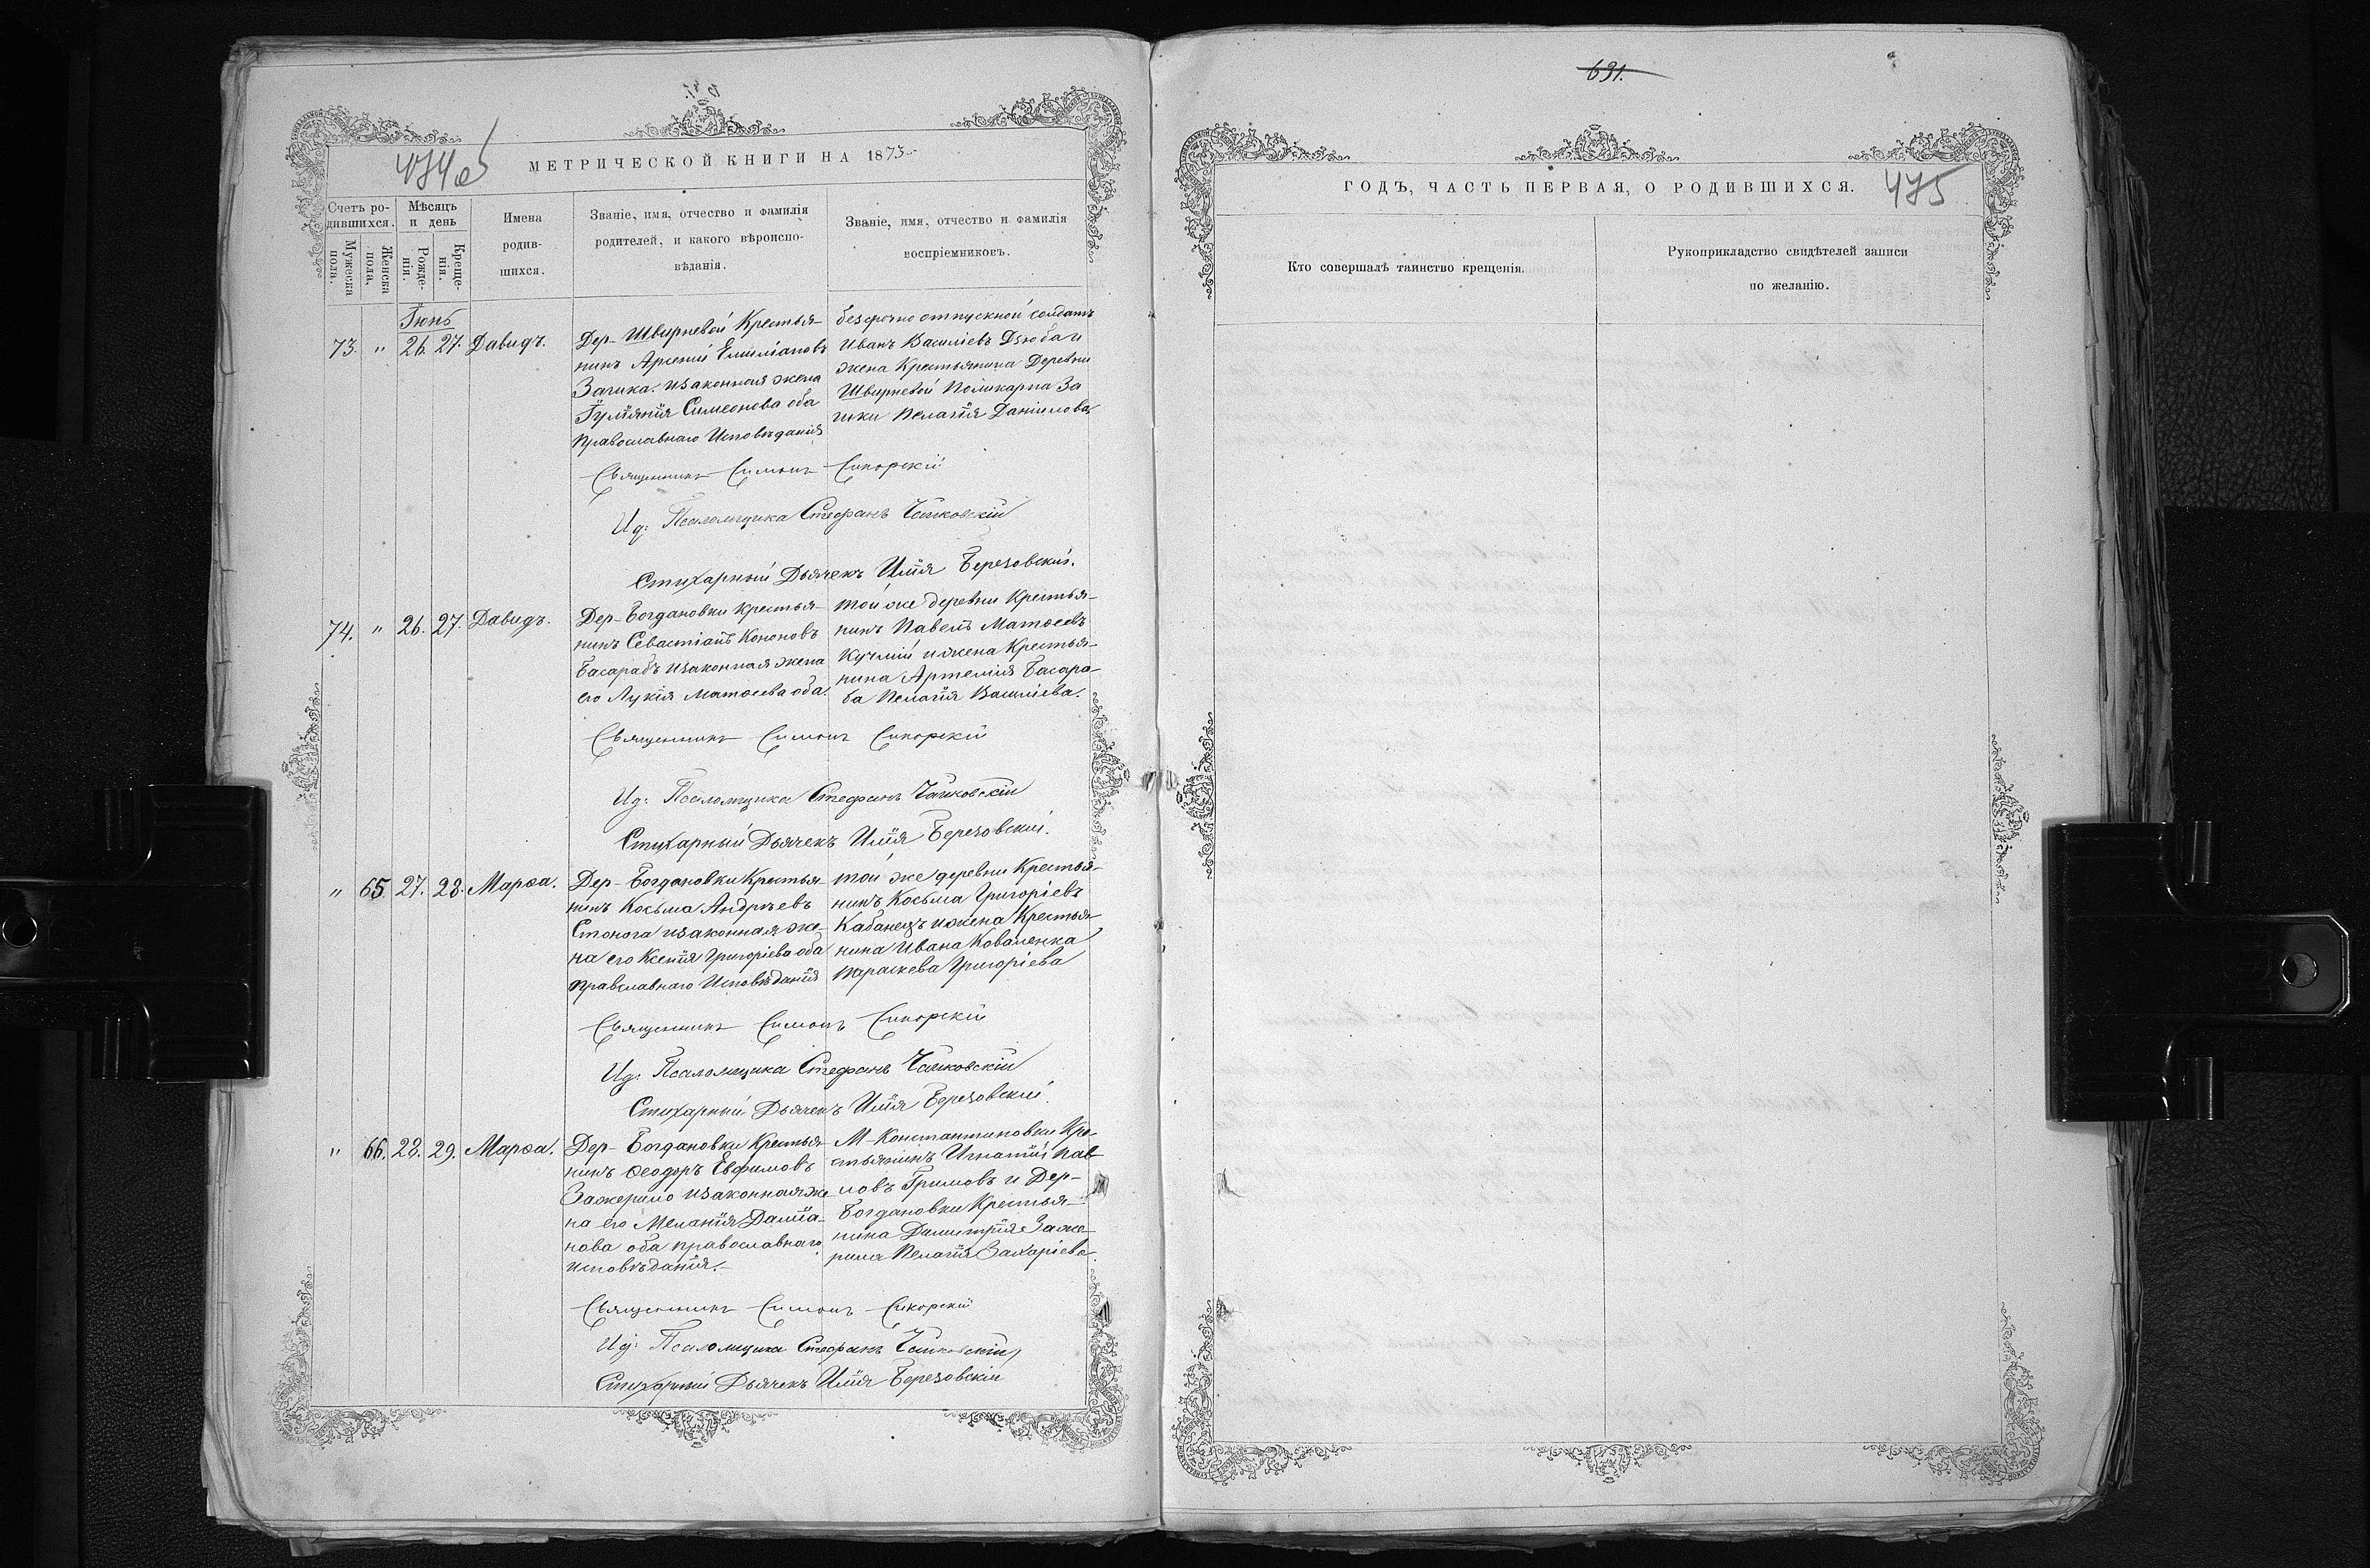 474об
МЕТРИЧЕСКОЙ КНИГИ НА 1873
Счетъ ро-
дившихся.
Мужеска
пола.
Женска
пола.
Мѣсяцъ
и день
Рожде-
нія.
Креще-
нія.
Имена
родив-
шихся.
Званіе, имя, отчество и фамилія
родителей, и какого вѣроиспо-
вѣданія.
Званіе, имя, отчество и фамилія
воспріемниковъ.
Іюнь
73. " 26. 27. Давидъ.
Дер- Швырневой Крестья-
нинъ Арсеній Емиліановъ
Заика. изаконная жена
Іуліянія Симеонова оба
православнаго Исповѣданія
безсрочно отпускной солдатъ
Иванъ Василіевъ Дзюба и
жена Крестьянина Деревни
Швырневой Поликарпа За
ики Пелагія Даніилова
Священникъ Симонъ Сикорскій
Ид: Псаломщика Стефанъ Чайковскій
Стихарный Дьячекъ Илія Березовскій.
74. " 26. 27. Давидъ.
Дер- Богдановки крестья-
нинъ Севастіанъ Кононовъ
Басарабъ изаконная жена
его Лукія Матѳеева оба
той же деревни Крестья-
нинъ Павелъ Матѳеевъ
Кучмій и жена Крестья-
нина Артемія Басара-
ба Пелагія Василіева.
Священникъ Симонъ Сикорскій
Ид: Псаломщика Стефанъ Чайковскій
Стихарный Дьячекъ Илія Березовскій.
" 65. 27. 28. Марѳа.
Дер- Богдановки Крестья-
нинъ Косьма Андрѣевъ
Стонога изаконная же-
на его Ксенія Григоріева оба
православнаго Исповѣданія
той же деревни Крестья-
нинъ Косьма Григоріевъ
Кабанецъ и жена Крестья-
нина Ивана Коваленка
Параскева Григоріева
Священникъ Симонъ Сикорскій
Ид: Псаломщика Стефанъ Чайковскій
Стихарный Дьячекъ Илія Березовскій.
" 66. 28. 29. Марѳа.
Дер- Богдановки Крестья
нинъ Ѳеодоръ Евфимовъ
Зажерило изаконная же
на его Меланія Даміа-
нова оба православнаго
исповѣданія.-
М- Константиновки Кре-
стьянинъ Игнатій Пав
ловъ Гримовъ и Дер-
Богдановки Крестья-
нина Димитрія Заже-
рила Пелагія Захаріева
Священникъ Симонъ Сикорскій
Ид: Псаломщика Стефанъ Чайковскій
Стихарный Дьячекъ Илія Березовскій
691.
ГОДЪ, ЧАСТЬ ПЕРВАЯ, О РОДИВШИХСЯ.
475
Кто совершалъ таинство крещенія.
Рукоприкладство свидѣтелей записи
по желанію.